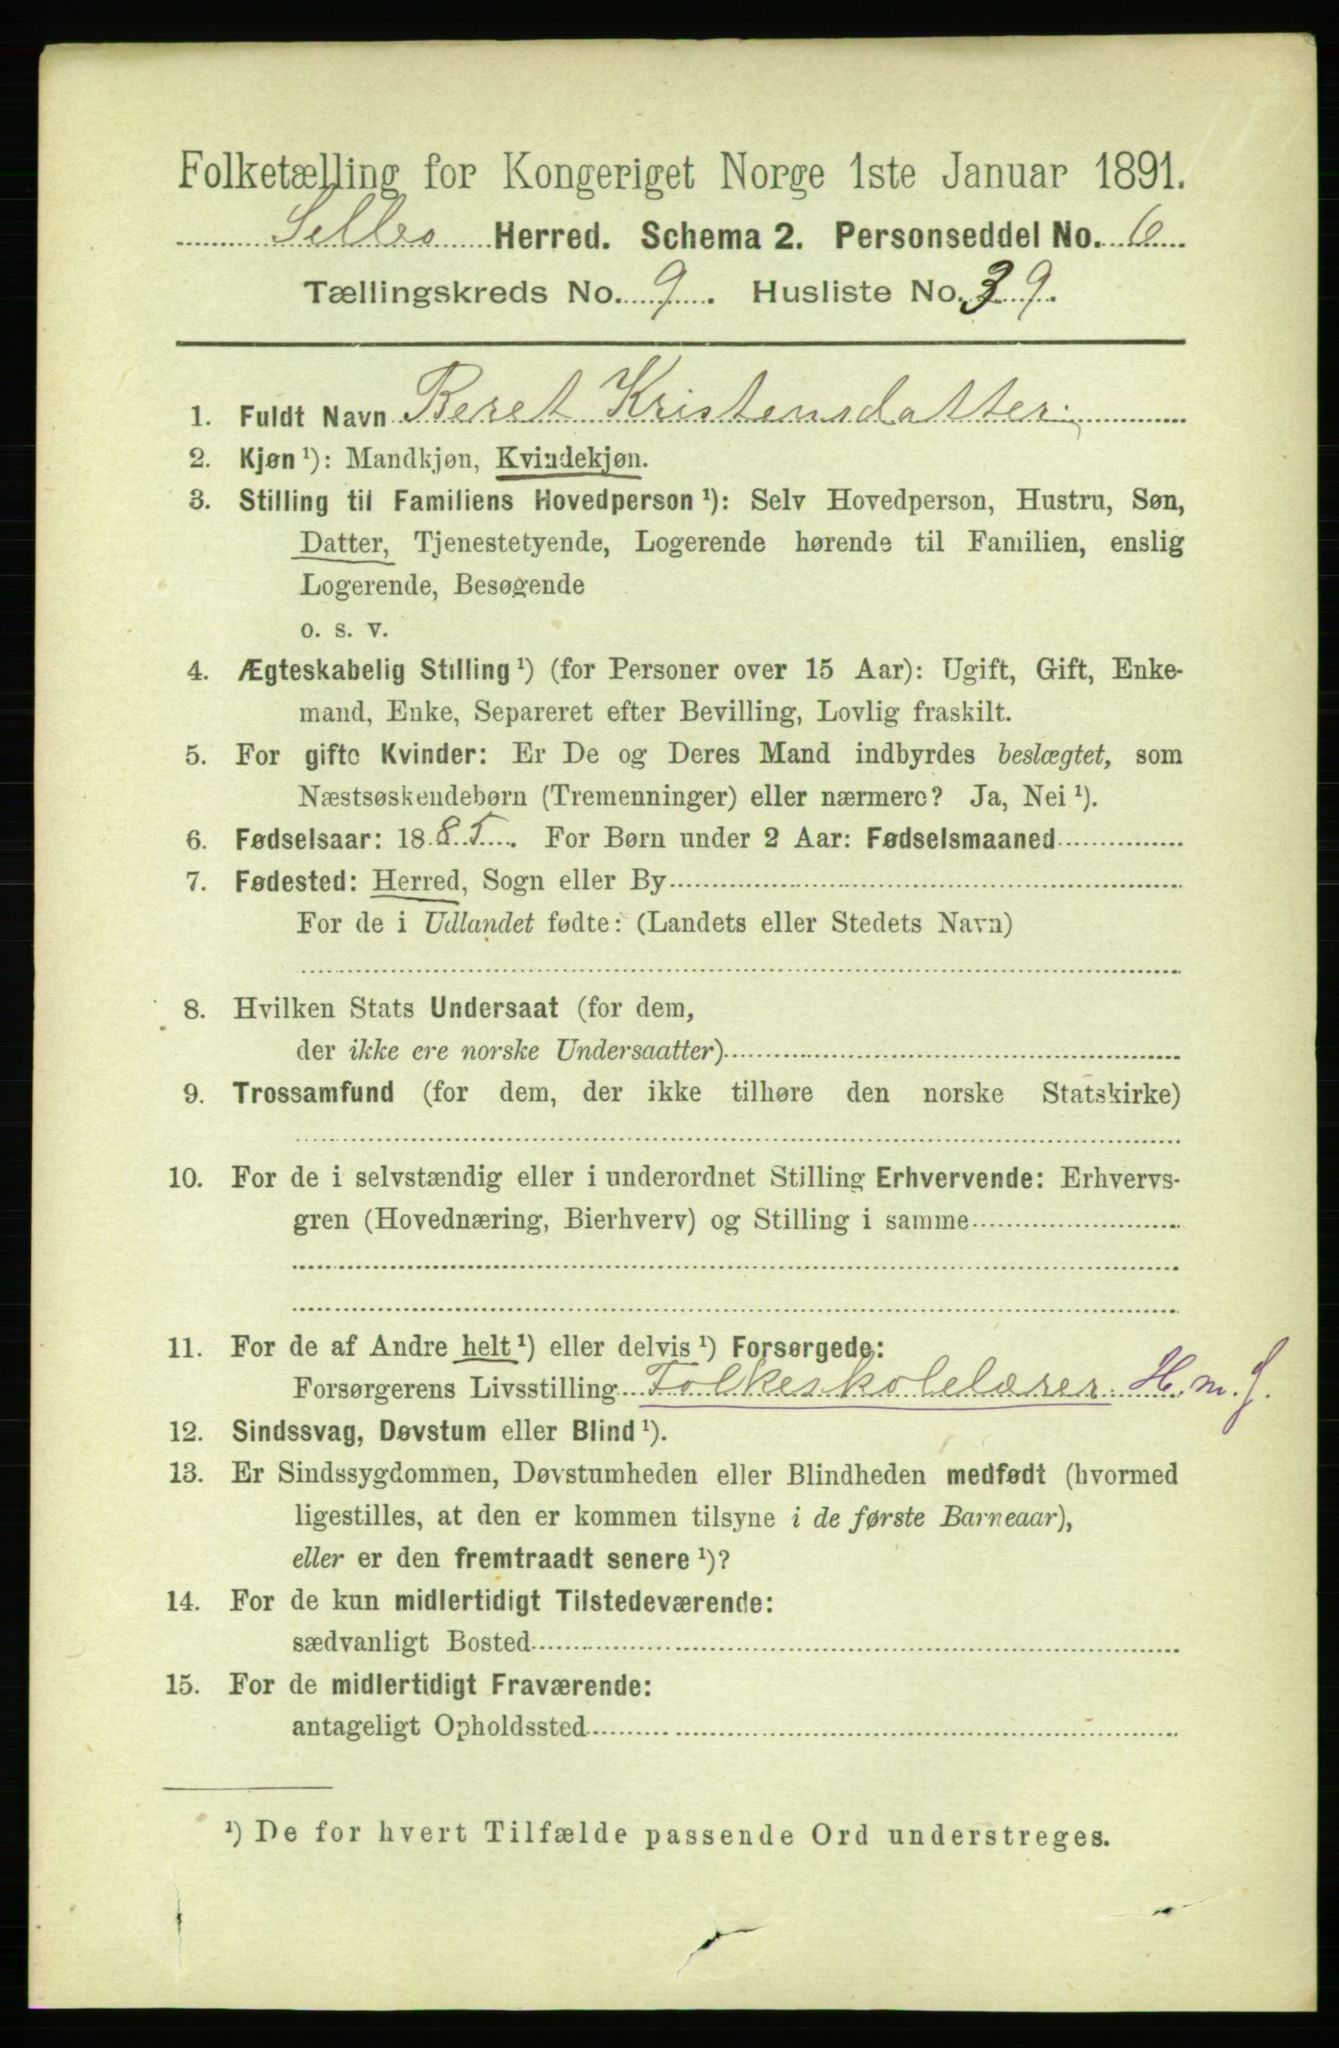 Folketælling for Kongeriget Norge 1ste Januar 1891.
Selbo Herred. Schema 2. Personseddel No. 6
Tællingskreds No. 9. Husliste No. 39.
1. Fuldt Navn Beret Kristensdatter.
2. Kjøn ¹): Mandkjøn, Kvindekjøn.
3. Stilling til Familiens Hovedperson ¹): Selv Hovedperson, Hustru, Søn,
Datter, Tjenestetyende, Logerende hørende til Familien, enslig
Logerende, Besøgende
o. s. v.
4. Ægteskabelig Stilling ¹) (for Personer over 15 Aar): Ugift, Gift, Enke-
mand, Enke, Separeret efter Bevilling, Lovlig fraskilt.
5. For gifte Kvinder: Er De og Deres Mand indbyrdes beslægtet, som
Næstsøskendebørn (Tremenninger) eller nærmere? Ja, Nei ¹).
6. Fødselsaar: 1885. For Børn under 2 Aar: Fødselsmaaned
7. Fødested: Herred, Sogn eller By
For de i Udlandet fødte: (Landets eller Stedets Navn)
8. Hvilken Stats Undersaat (for dem,
der ikke ere norske Undersaatter)
9. Trossamfund (for dem, der ikke tilhøre den norske Statskirke)
10. For de i selvstændig eller i underordnet Stilling Erhvervende: Erhvervs-
gren (Hovednæring, Bierhverv) og Stilling i samme
11. For de af Andre helt ¹) eller delvis ¹) Forsørgede:
Forsørgerens Livsstilling Folkeskolelærer H. m. J.
12. Sindssvag, Døvstum eller Blind ¹).
13. Er Sindssygdommen, Døvstumheden eller Blindheden medfødt (hvormed
ligestilles, at den er kommen tilsyne i de første Barneaar),
eller er den fremtraadt senere ¹)?
14. For de kun midlertidigt Tilstedeværende:
sædvanligt Bosted
15. For de midlertidigt Fraværende:
antageligt Opholdssted
¹) De for hvert Tilfælde passende Ord understreges.